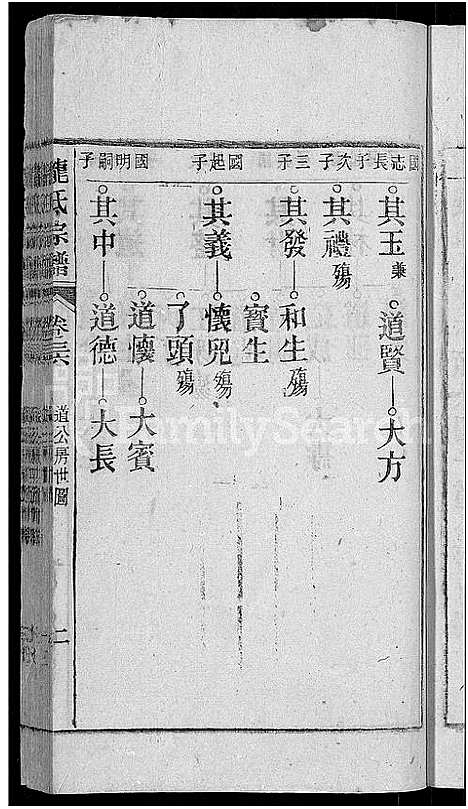 國志長子
次子
三子
國起子
國明嗣子
其玉兼
道賢
大方
其禮殤
其發
和生殤
寶生
其義
懷兒殤
了頭殤
道懷
大賓
其中
道德
大長
氏宗譜
卷三六
道公房世圖
二
FamilySearch